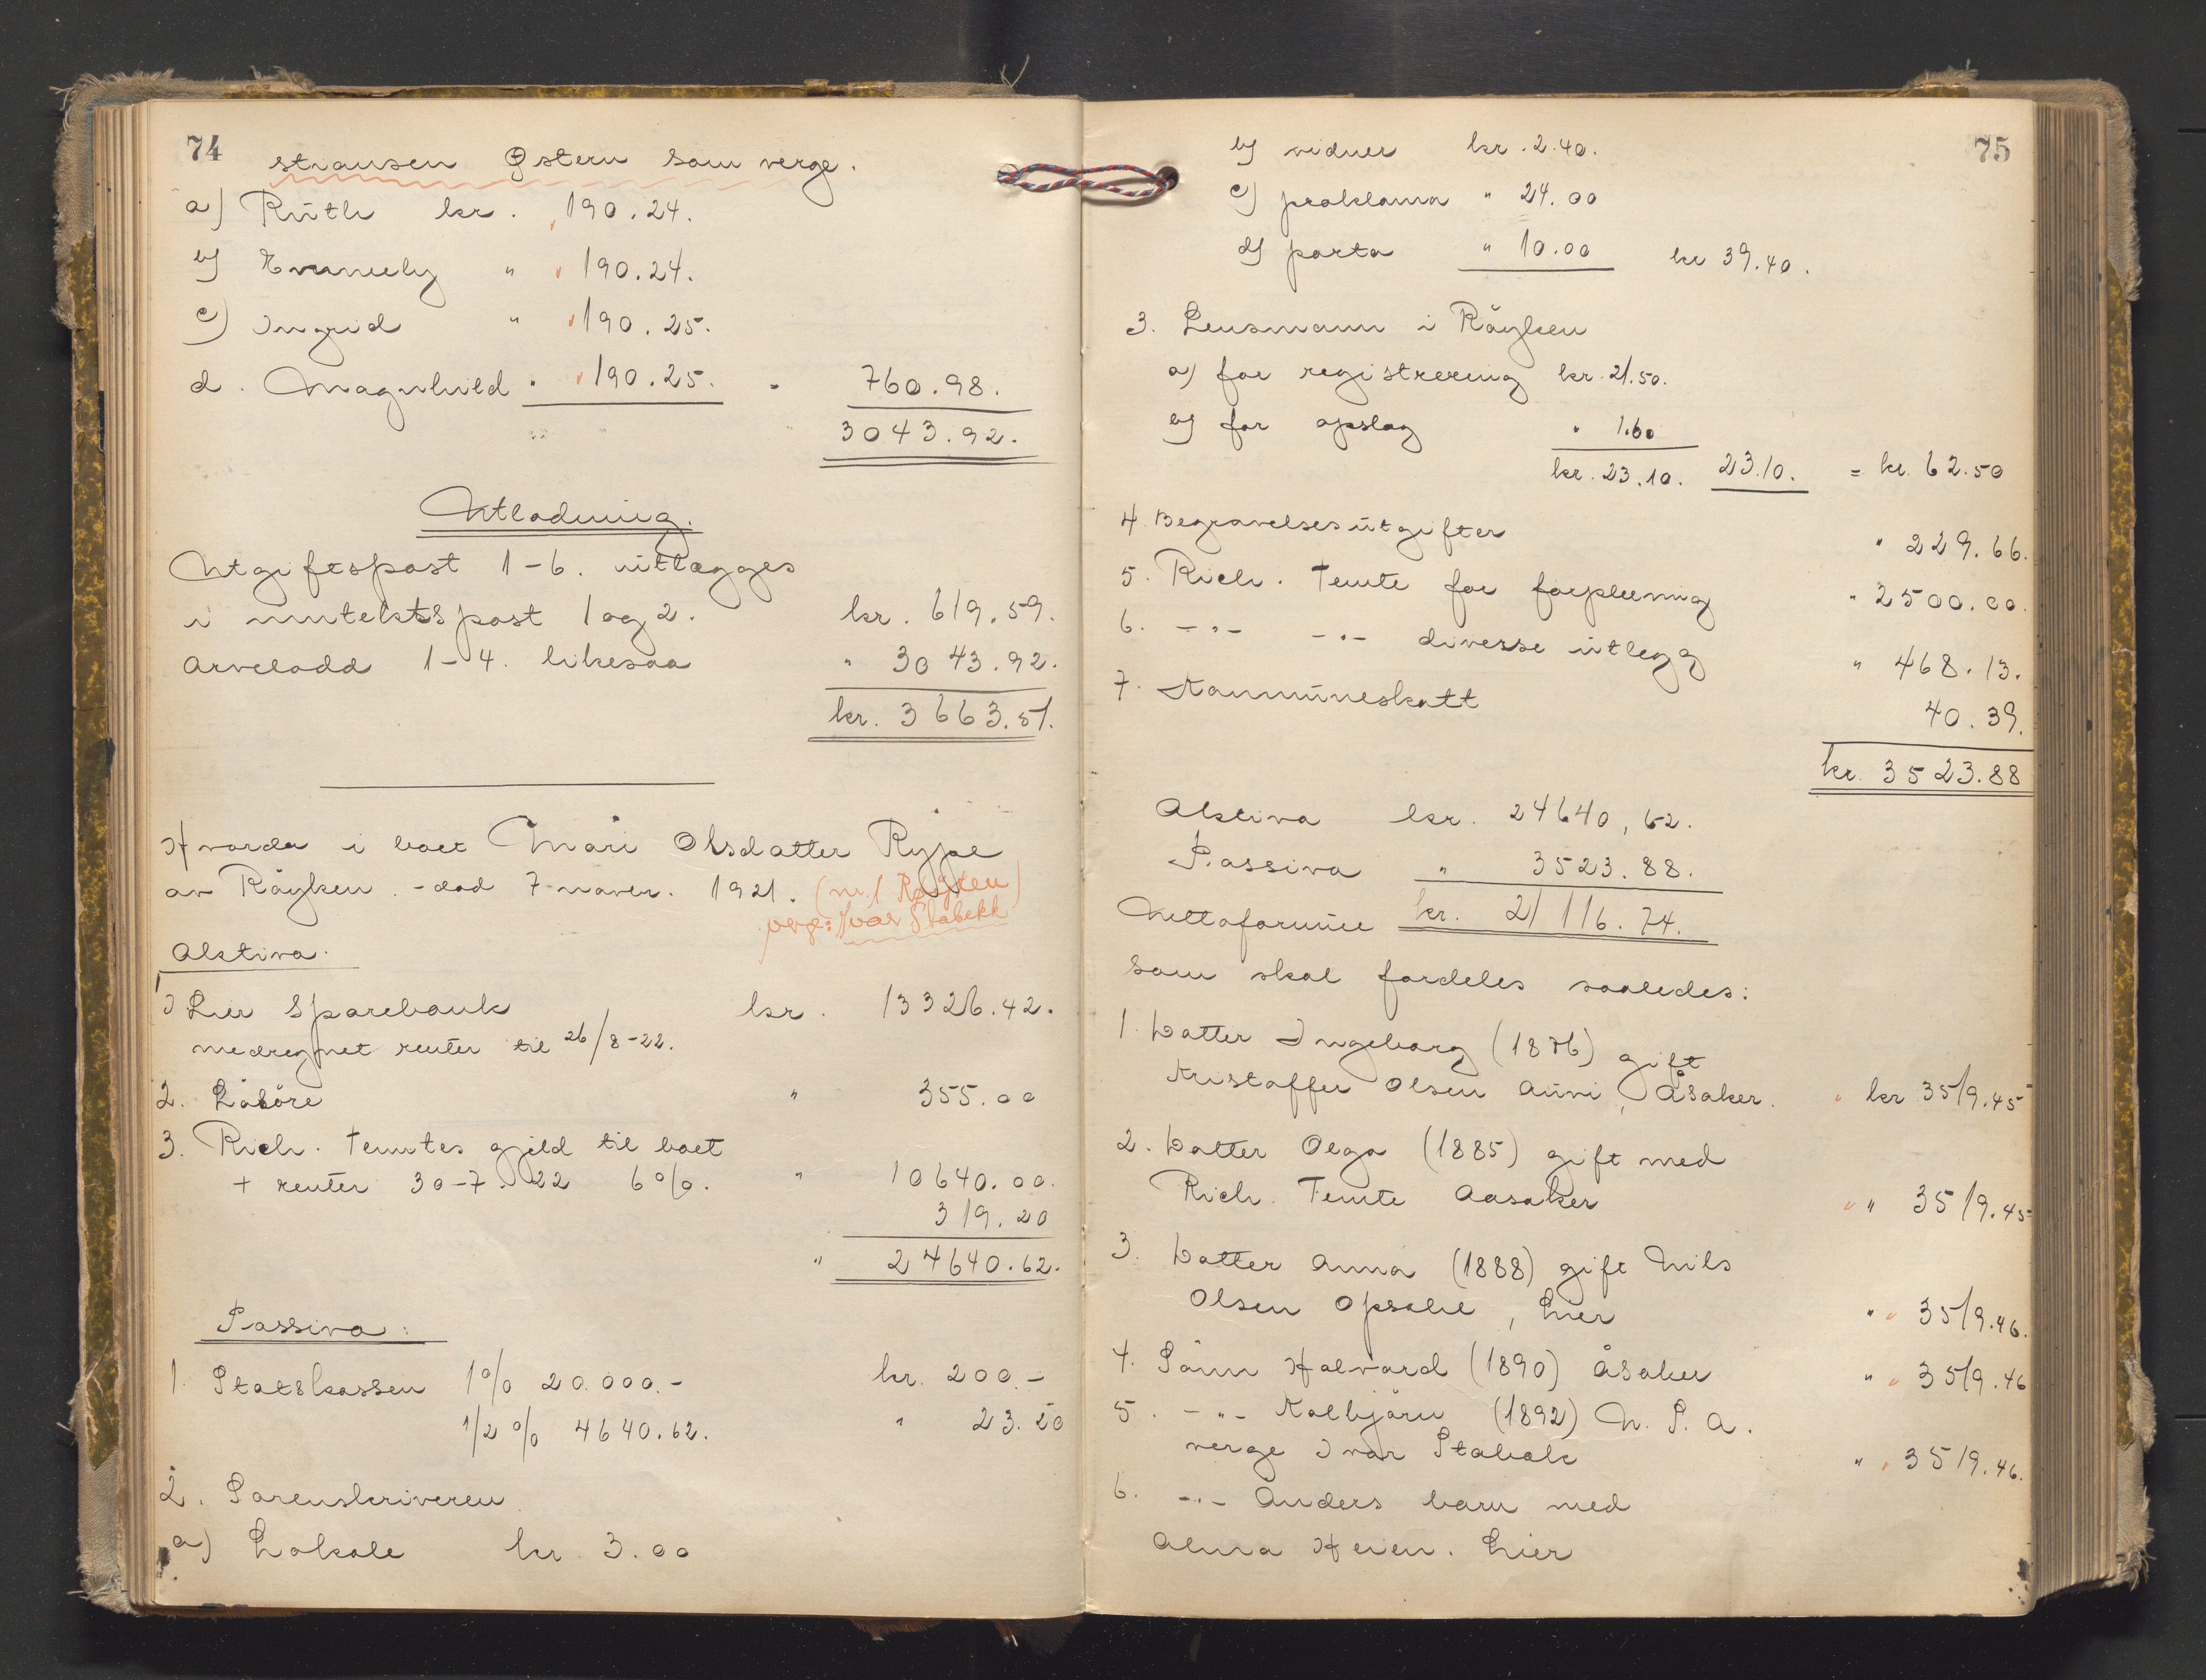 74
stiansen Østern som verge.
a) Ruth kr. 190.24.
b) Emmely " 190.24.
c) Ingrid " 190.25.
d. Magnhild " 190.25. - 760.98.
3043.92.
Utlodning.
Utgiftspost 1-6. utlægges
i inntektspost 1 og 2. kr. 619.59.
Arvelodd 1-4. likesaa " 3043.92.
kr. 3663.51.
Hvorda i boet Mari Olsdatter Rypе
av Röyken. - död 7 novbr. 1921. (nr. 1 Røyken)
verge: Ivar Stabekk
Aktiva.
1) Lier Sparebank kr. 13326.42.
medregnet renter til 26/8-22.
2. Lösöre " 355.00
3. Rich. Temtes gjeld til boet
+ renter 30-7. 22 6%. " 10640.00.
319.20
" 24640.62.
Passiva:
1. Statskassen 1% 20.000.- kr. 200.-
1/2 % 4640.62. " 23.20
2. Sorenskriveren
a) Lokale kr. 3.00
75
b) vidner kr. 2.40.
c) proklama " 24.00
d) porto " 10.00 kr 39.40.
3. Lensmann i Röyken
a) for registrering kr. 21.50.
b) for opslag " 1.60
kr. 23.10. 23.10. = kr. 62.50
4. Begravelsesutgifter " 229.66.
5. Rich. Temte for forpleining " 2500.00.
6. -"- -"- diverse utlegg " 468.13.
7. Kommuneskatt 40.39.
kr. 3523.88
Aktiva kr. 24640,62.
Passiva " 3523.88.
Nettoformue kr. 21116.74.
som skal fordeles saaledes:
1. Datter Ingeborg (1876) gift
Kristoffer Olsen Auvi, Åsaker. kr 3519.45
2. Datter Olga (1885) gift med
Rich. Temte Aasaker " 3519.45
3. Datter Anna (1888) gift Nils
Olsen Opsahl, Lier " 3519.46.
4. Sönn Halvard (1890) Åsaker " 3519.46
5. -"- Kolbjörn (1892) U. S. A.
verge Ivar Stabæk " 3519.46.
6. -"- Anders barn med
Alma Heien. Lier